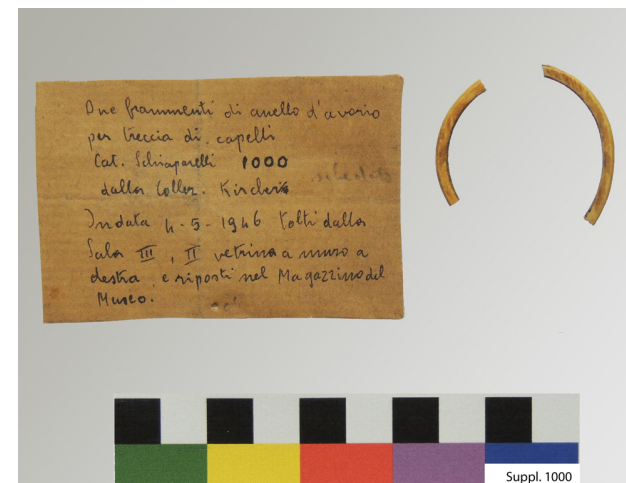 Due frammenti di anello d'avorio
per treccia di capelli
Cat. Schiaparelli 1000
dalla Collez. Kircher
In data 4-5-1946 tolti dalla
Sala III, II vetrina a muro a
destra, e riposti nel Magazzino del
Museo.
Suppl. 1000